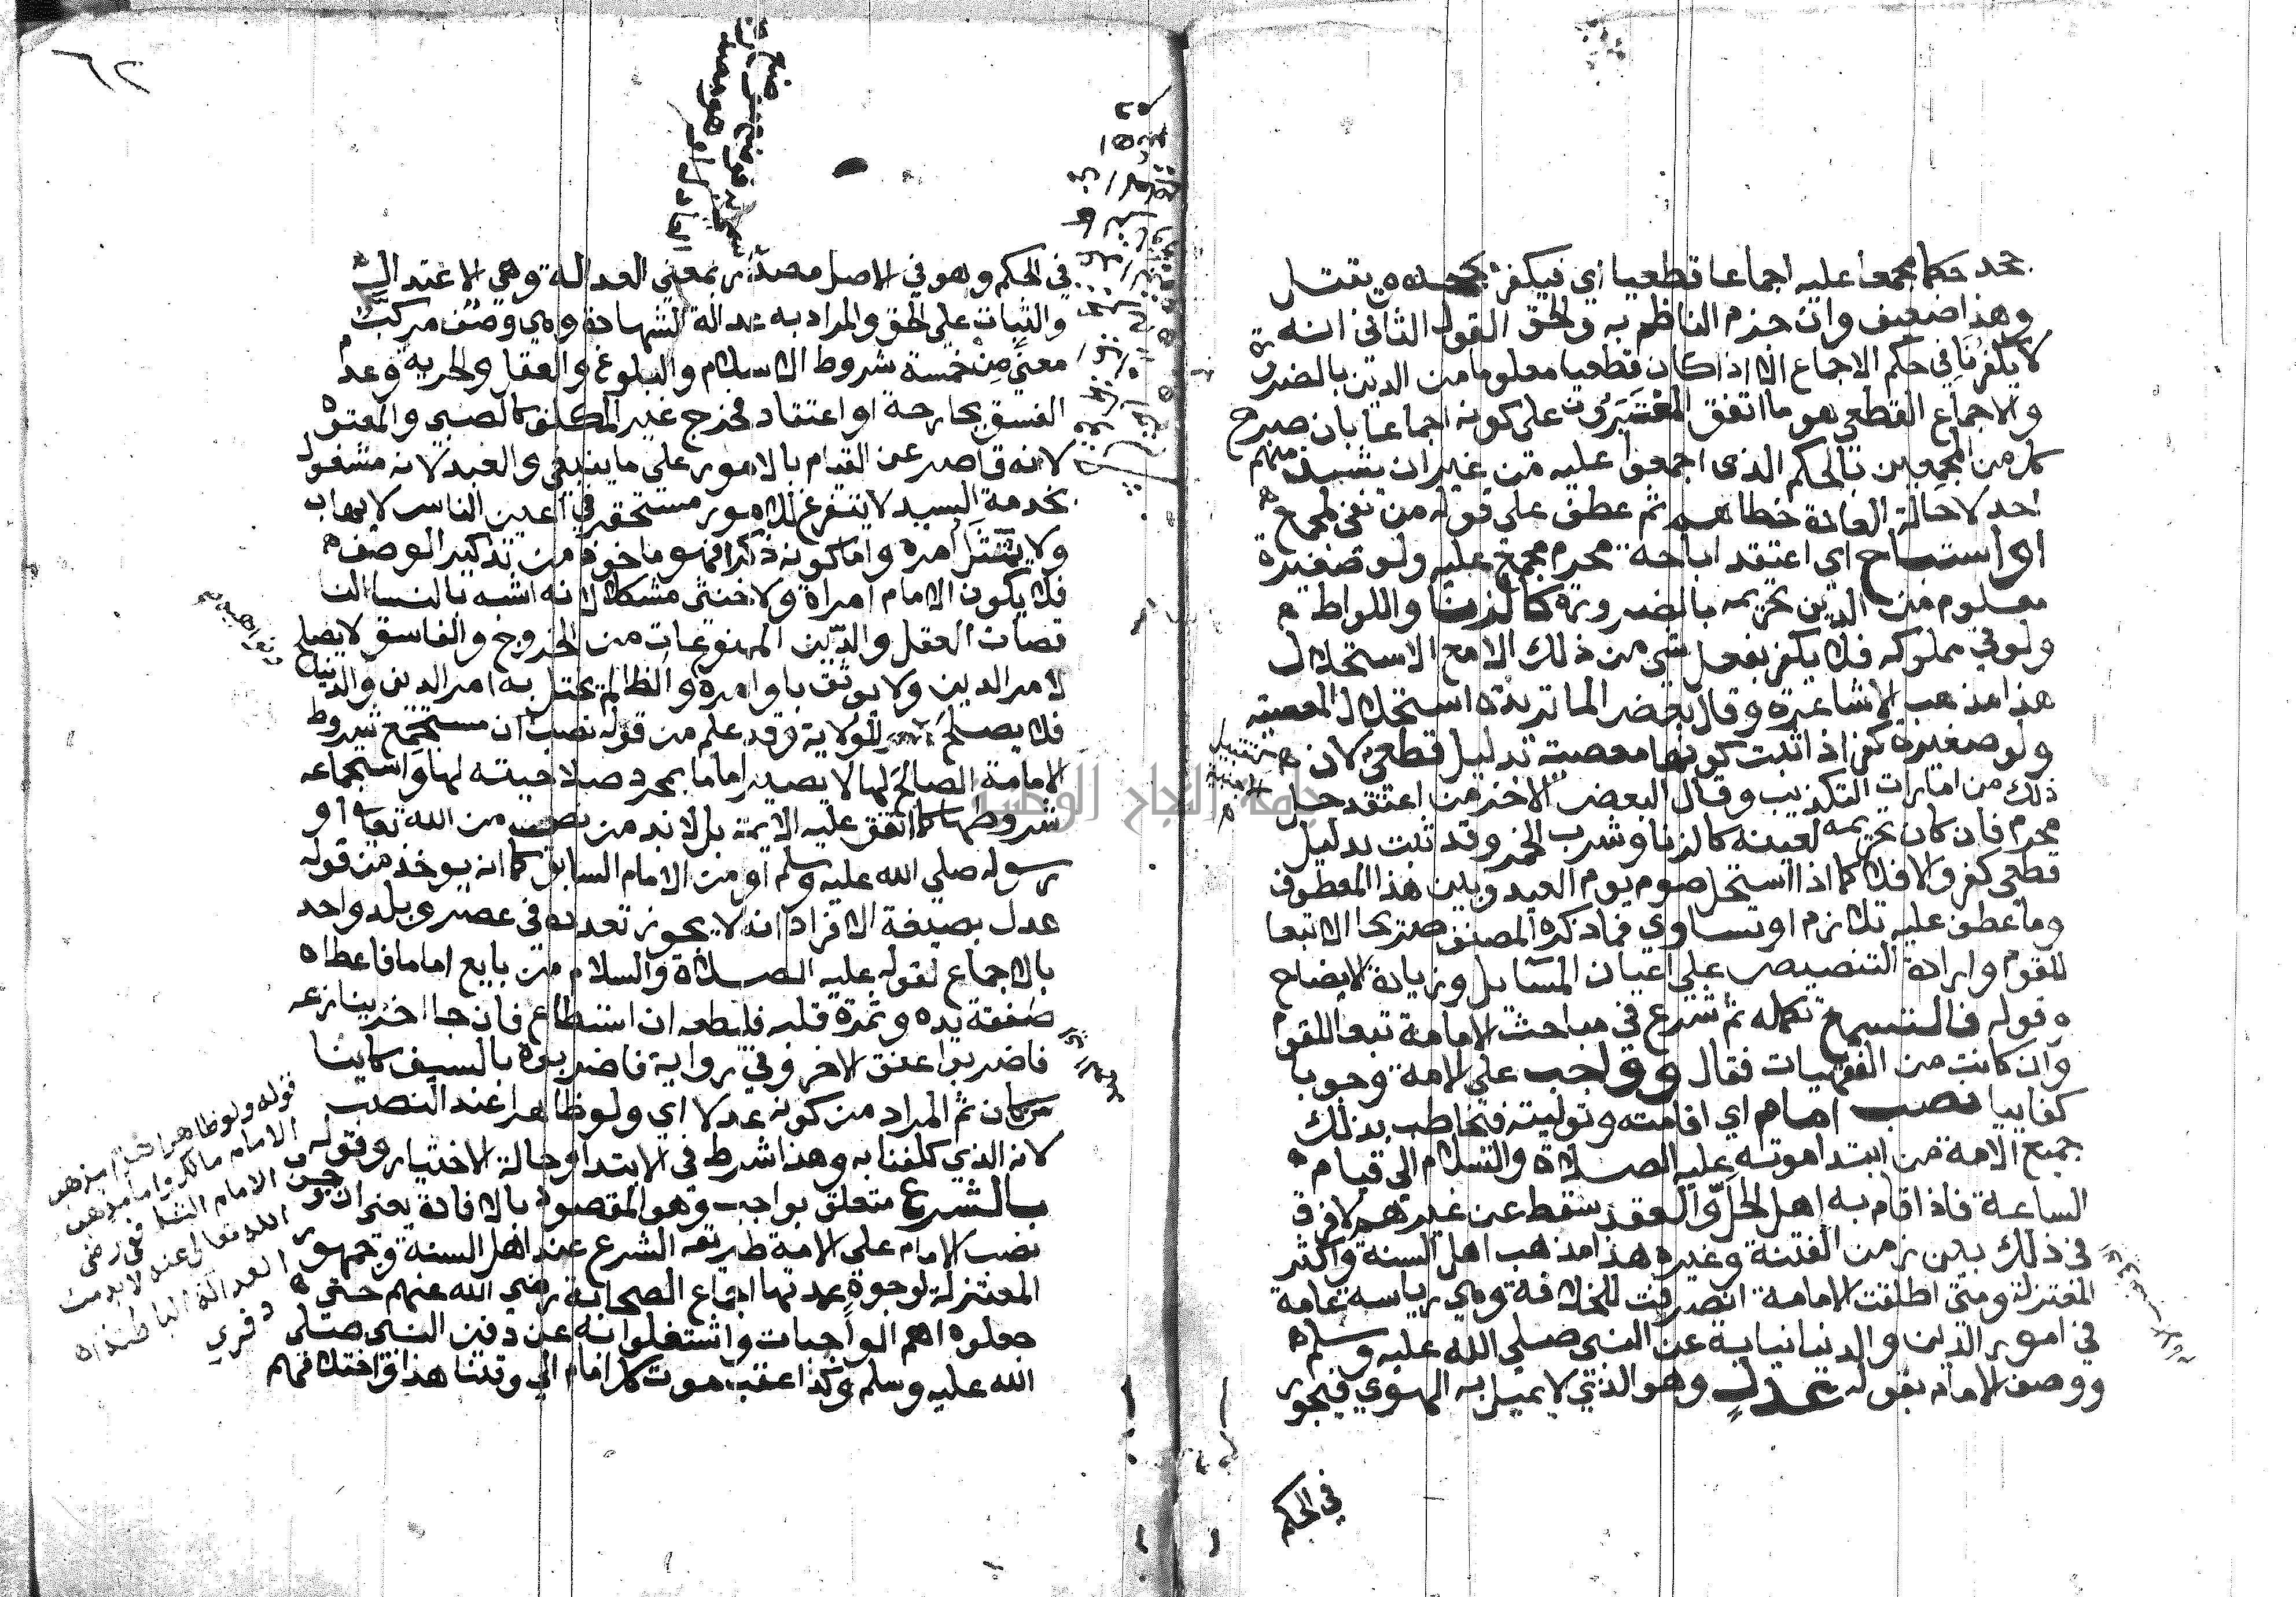 جحد حكما مجمعا عليه اجماعا قطعيا اي فيكفر بجحده يقتل
وهذا ضعيف وان جزم الناظم به والحق القول الثاني انه
لا يكفر نافي حكم الاجماع الا اذا كان قطعيا معلوما من الدين بالضرورة
والاجماع القطعي هو ما اتفق المعتبرون على كونه اجماعا بان صرح
كل من المجمعين بالحكم الذى اجمعوا عليه من غير ان يشذ منهم
احد لاحالة العادة خطاهم ثم عطف على قوله من نفى لمجمع
او استباح اي اعتقد اباحة محرم مجمع عليه ولو صغيرة
معلوم من الدين تحريمه بالضرورة كالزنا واللواط
ولو في مملوكه فلا يكفر بفعل شى من ذلك الا مع الاستحلال
هذا مذهب الاشاعرة وقال بعض الماتريدة استحلال المعصية
ولو صغيرة كفر اذا ثبت كونها معصية بدليل قطعي لان
ذلك من امارات التكذيب وقال البعض الاخر من اعتقد حل
محرم فان كان تحريمه لعينه كالزنا وشرب الخمر وقد ثبت بدليل
قطعى كفر والا فلا كما اذا استحل صوم يوم العيد وبين هذا المعطوف
وما عطف عليه تلازم او تساوي فما ذكره المصنف صريحا الا تبعا
للقوم وارادة التنصيص على اعيان المسايل وزيادة الايضاح
وقوله فالتسمع تكمله ثم شرع في مباحث الامامة تبعا للقوم
وان كانت من الفقهيات فقال وواجب على الامة وجوبا
كفاييا نصب امام اي اقامته وتوليته فتخاطب بذلك
جميع الامة من ابتدا موته عليه الصلاة والسلام الى قيام
الساعة فاذا قام به اهل الحل والعقد سقط عن غيرهم لا فرق
في ذلك بين زمن الفتنة وغيره هذا مذهب اهل السنة واكثر
المعتزلة ومتى اطلقت الامامة انصرفت للخلافة وهي رياسة عامة
في امور الدين والدنيا نيابة عن النبي صلى الله عليه وسلم
ووصف الامام بقوله عدل وهو الذي لا يميل به الهوي فيجور
في الحكم
٦٢
في الحكم وهو في الاصل مصدر بمعنى العدالة وهي الاعتدال
والثبات على الحق والمراد به عدالة الشهادة وهي وصف مركب
معنى من خمسة شروط الاسلام والبلوغ والعقل والحرية وعدم
الفسق بجارحة او اعتقاد فخرج غير المكلف كالصبي والمعتوه
لانه قاصر عن القيام بالامور على ما ينبغي والعبد لانه مشغول
بخدمة السيد لا يتفرغ للامور مستحقر في اعين الناس لا يهاب
ولا يمتثل امره واما كونه ذكرا فهو ماخوذ من تذكير الوصف
فلا يكون الامام امراة ولا خنثى مشكلا لانه اشبه بالنسا النا
قصات العقل والدين الممنوعات من الخروج والفاسق لا يصلح
لامر الدين ولا يوثق باوامره والظالم يختل به امر الدين والدنيا
فلا يصلح للولاية وقد علم من قوله نصب ان مستجمع شروط
الامامة الصالح لها لا يصير اماما بمجرد صلاحيته لها واستجماعه
شروطها كما اتفق عليه الايمة بل لا بد من نصب من الله تعالى او
رسوله صلى الله عليه وسلم او من الامام السابق كما انه يوخذ من قوله
عدل بصيغة الافراد انه لا يجوز تعدده في عصر وبلد واحد
بالاجماع لقوله عليه الصلاة والسلام من بايع اماما فاعطاه
صفقة يده وثمرة قلبه فليطعه ان استطاع فان جا اخر ينازعه
فاضربوا عنق الاخر وفي رواية فاضربوه بالسيف كاينا
من كان ثم المراد من كونه عدلا اي ولو ظاهرا عند النصب
لانه الذي كلفنا به وهذا شرط في الابتدا وحالة الاختيار وقوله
بالشرع متعلق بواجب وهو المقصود بالافادة يعني ان وجوب
نصب الامام على الامة طريقه الشرع عند اهل السنة وجمهور
المعتزلة لوجوه عمدتها اجماع الصحابة رضي الله عنهم حتى
جعلوه اهم الواجبات واشتغلوا به عن دفن النبي صلى
الله عليه وسلم وكذا عقب موت كل امام الي وقتنا هذا واختلافهم
قوله ولو ظاهرا
الامام مالك واما مذهب
الامام الشافعي رضى
الله تعالى عنه لا بد من
العدالة الباطنة اه
جامعة النجاح الوطنية